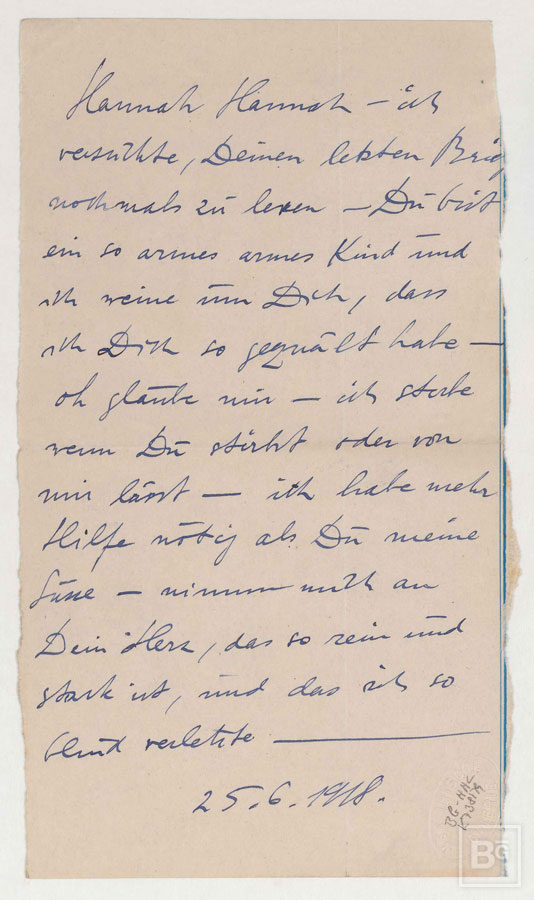 Hannah Hannah – ich
versuchte, Deinen letzten Brief
nochmals zu lesen – Du bist
ein so armes armes Kind und
ich weine um Dich, dass
ich Dich so gequält habe –
oh glaube mir – ich sterbe
wenn Du stirbst oder von
mir lässt – ich habe mehr
Hilfe nötig als Du meine
Süsse – nimm mich an
Dein Herz, das so rein und
stark ist, und das ich so
blind verletzte —
25.6.1918.
BG-HHC
BG